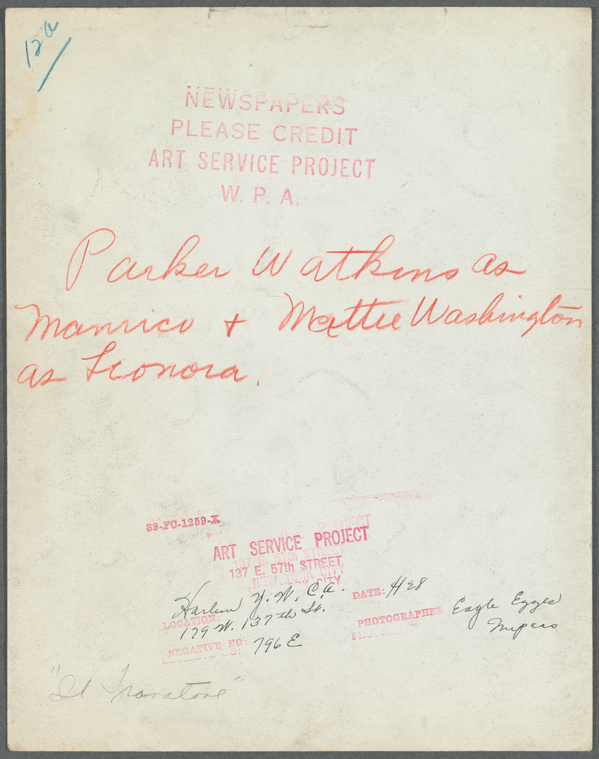 12a
NEWSPAPERS
PLEASE CREDIT
ART SERVICE PROJECT
W. P. A.
Parker Watkins as
Manrico + Mattie Washington
as Leonora.
89-FC-1259-X
ART SERVICE PROJECT
137 E. 57th STREET
NEW YORK CITY
Harlem Y.W.C.A.
LOCATION:
179 W. 137th St.
DATE: 4/28
PHOTOGRAPHER
NEGATIVE NO: 796E
"Il Trovatore"